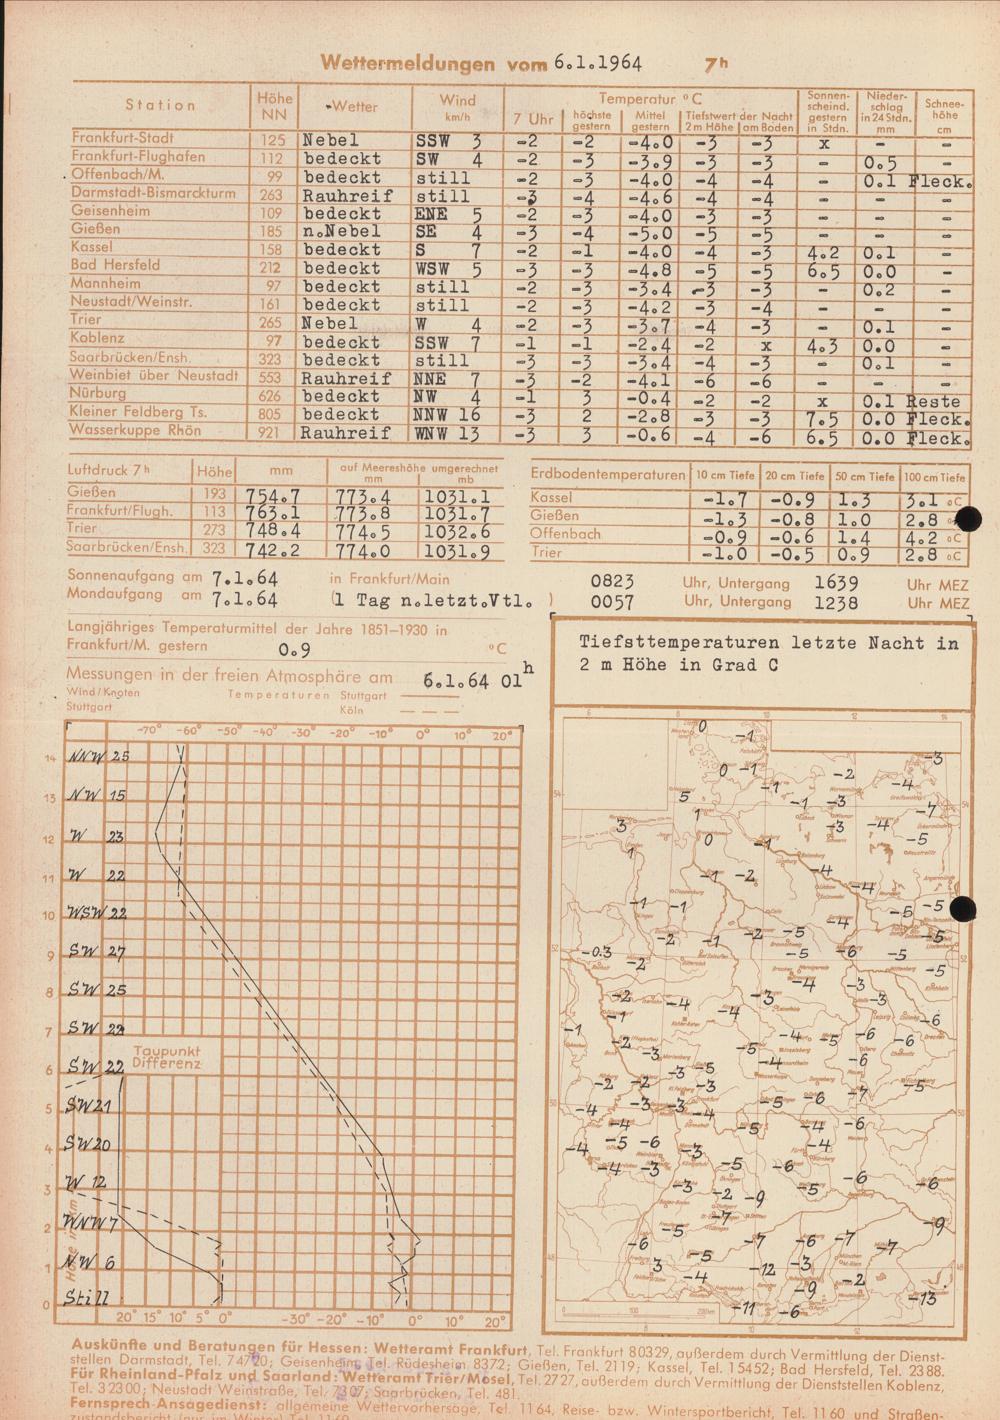 Wettermeldungen vom 6.1.1964 7h
Station Höhe NN Wetter Wind km/h Temperatur °C Sonnenscheind. gestern in Stdn. Niederschlag in 24 Stdn. mm Schneehöhe cm
7 Uhr höchste gestern Mittel gestern Tiefstwert der Nacht 2m Höhe am Boden
Frankfurt-Stadt 125 Nebel SSW 3 -2 -2 -4.0 -3 -3 x - -
Frankfurt-Flughafen 112 bedeckt SW 4 -2 -3 -3.9 -3 -3 - 0.5 -
Offenbach/M. 99 bedeckt still -2 -3 -4.0 -4 -4 - 0.1 Fleck.
Darmstadt-Bismarckturm 263 Rauhreif still -3 -4 -4.6 -4 -4 - - -
Geisenheim 109 bedeckt ENE 5 -2 -3 -4.0 -3 -3 - - -
Gießen 185 n.Nebel SE 4 -3 -4 -5.0 -5 -5 - - -
Kassel 158 bedeckt S 7 -2 -1 -4.0 -4 -3 4.2 0.1 -
Bad Hersfeld 212 bedeckt WSW 5 -3 -3 -4.8 -5 -5 6.5 0.0 -
Mannheim 97 bedeckt still -2 -3 -3.4 -3 -3 - 0.2 -
Neustadt/Weinstr. 161 bedeckt still -2 -3 -4.2 -3 -4 - - -
Trier 265 Nebel W 4 -2 -3 -3.7 -4 -3 - 0.1 -
Koblenz 97 bedeckt SSW 7 -1 -1 -2.4 -2 x 4.3 0.0 -
Saarbrücken/Ensh. 323 bedeckt still -3 -3 -3.4 -4 -3 - 0.1 -
Weinbiet über Neustadt 553 Rauhreif NNE 7 -3 -2 -4.1 -6 -6 - - -
Nürburg 626 bedeckt NW 4 -1 3 -0.4 -2 -2 x 0.1 Reste
Kleiner Feldberg Ts. 805 bedeckt NNW 16 -3 2 -2.8 -3 -3 7.5 0.0 Fleck.
Wasserkuppe Rhön 921 Rauhreif WNW 13 -3 3 -0.6 -4 -6 6.5 0.0 Fleck.
Luftdruck 7h Höhe mm auf Meereshöhe umgerechnet mm mb
Gießen 193 754.7 773.4 1031.1
Frankfurt/Flugh. 113 763.1 773.8 1031.7
Trier 273 748.4 774.5 1032.6
Saarbrücken/Ensh. 323 742.2 774.0 1031.9
Erdbodentemperaturen 10 cm Tiefe 20 cm Tiefe 50 cm Tiefe 100 cm Tiefe
Kassel -1.7 -0.9 1.3 3.1 °C
Gießen -1.3 -0.8 1.0 2.8
Offenbach -0.9 -0.6 1.4 4.2 °C
Trier -1.0 -0.5 0.9 2.8 °C
Sonnenaufgang am 7.1.64 in Frankfurt/Main 0823 Uhr, Untergang 1639 Uhr MEZ
Mondaufgang am 7.1.64 (1 Tag n.letzt.Vtl. ) 0057 Uhr, Untergang 1238 Uhr MEZ
Langjähriges Temperaturmittel der Jahre 1851–1930 in
Frankfurt/M. gestern 0.9 °C
Messungen in der freien Atmosphäre am 6.1.64 01h
Wind/Knoten Temperaturen Stuttgart
Stuttgart Köln
-70° -60° -50° -40° -30° -20° -10° 0° 10° 20°
14 NNW 25
13 NW 15
12 W 23
11 W 22
10 WSW 22
9 SW 27
8 SW 25
7 SW 22
Taupunkt
Differenz
6 SW 22
5 SW 21
4 SW 20
3 W 12
2 WNW 7
1 NW 6
0 Still
20° 15° 10° 5° 0° -30° -20° -10° 0° 10° 20°
Tiefsttemperaturen letzte Nacht in
2 m Höhe in Grad C
0 -1 -3
0 -1 -2 -4
5 -1 -1 -3 -7
3 1 -3 -4 -5
1 0 -1
-1 -2 -4 -4
-1 -1 -4 -5 -5
-2 -1 -2 -5 -5
-0.3 -2 -5 -6 -5 -5
-2 -4 -3 -4 -3 -3
-1 -1 -6
-2 -3 -5 -4 -5 -6 -6
-3 -5 -4 -6
-2 -2 -3 -5 -6 -7 -5
-4 -3 -3 -4
-4 -5 -4 -6
-4 -5 -6 -3 -4
-4 -3 -5 -6
-3 -2 -9 -5 -6 -6
-5 -7 -9
-6 -7 -6 -7 -7
3 -5 -12 -3
-4 -9 -2
-11 -6 -13
Auskünfte und Beratungen für Hessen: Wetteramt Frankfurt, Tel. Frankfurt 80329, außerdem durch Vermittlung der Dienst-
stellen Darmstadt, Tel. 74720; Geisenheim, Tel. Rüdesheim 8372; Gießen, Tel. 2119; Kassel, Tel. 15452; Bad Hersfeld, Tel. 2388.
Für Rheinland-Pfalz und Saarland: Wetteramt Trier/Mosel, Tel. 2727, außerdem durch Vermittlung der Dienststellen Koblenz,
Tel. 32300; Neustadt Weinstraße, Tel. 7307; Saarbrücken, Tel. 481.
Fernsprech-Ansagedienst: allgemeine Wettervorhersage, Tel. 1164, Reise- bzw. Wintersportbericht, Tel. 1160 und Straßen-
zustandsbericht (nur im Winter) Tel. 1160